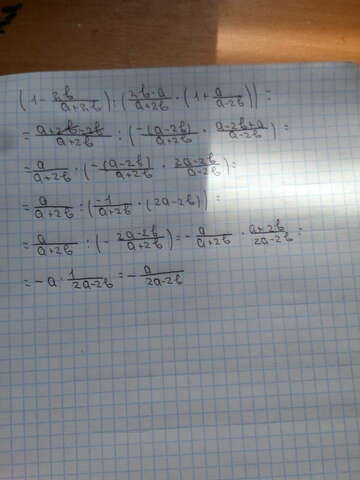 (1 - 2b/(a+2b)) : (2b-a/(a+2b) · (1 + a/(a-2b))) =
= (a+2b-2b)/(a+2b) : (-(a-2b)/(a+2b) · (a-2b+a)/(a-2b)) =
= a/(a+2b) : (-(a-2b)/(a+2b) · (2a-2b)/(a-2b)) =
= a/(a+2b) : (-1/(a+2b) · (2a-2b)) =
= a/(a+2b) : (- (2a-2b)/(a+2b)) = - a/(a+2b) · (a+2b)/(2a-2b) =
= -a · 1/(2a-2b) = - a/(2a-2b)